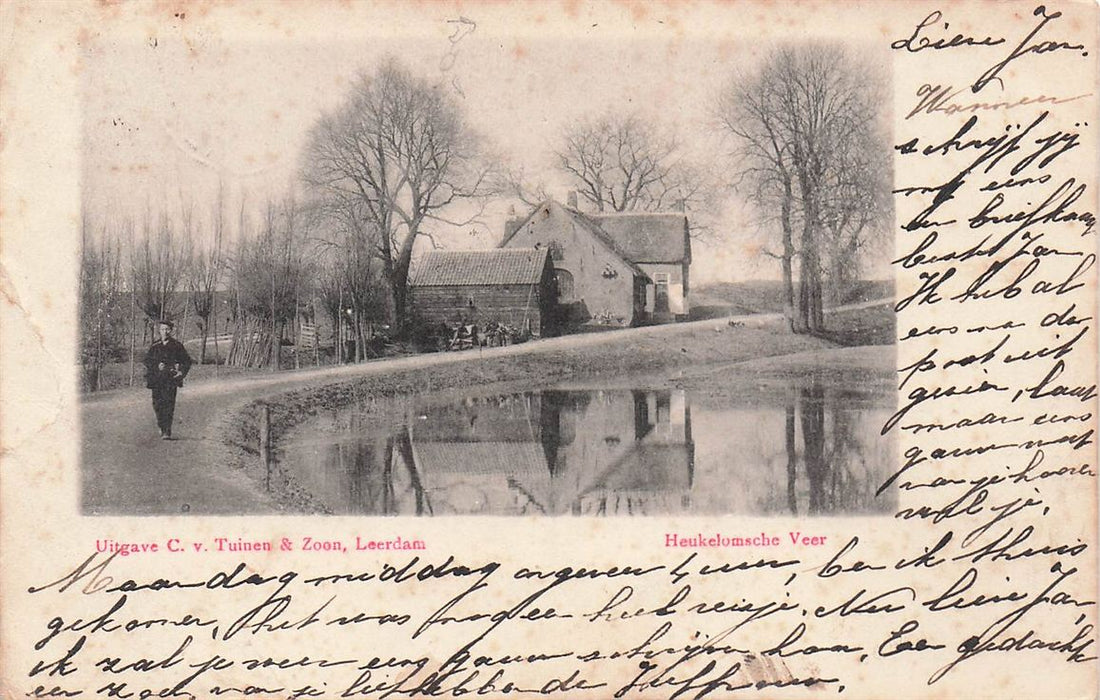 Lieve Jan.
Wanneer
schrijf jij
mij eens
een briefkaart
beste Jan
Ik heb al
eens na de
post uit
gezien, laat
maar eens
gauw wat
van je hooren
wil je,
Uitgave C. v. Tuinen & Zoon, Leerdam
Heukelomsche Veer
Maandag middag ongeveer 4 uur, ben ik thuis
gekomen, het was nog een heel reisje. Nu lieve Jan,
ik zal je weer eens gauw schrijven hoor, Een gedacht
en zoen van je liefhebbende Juffrouw.